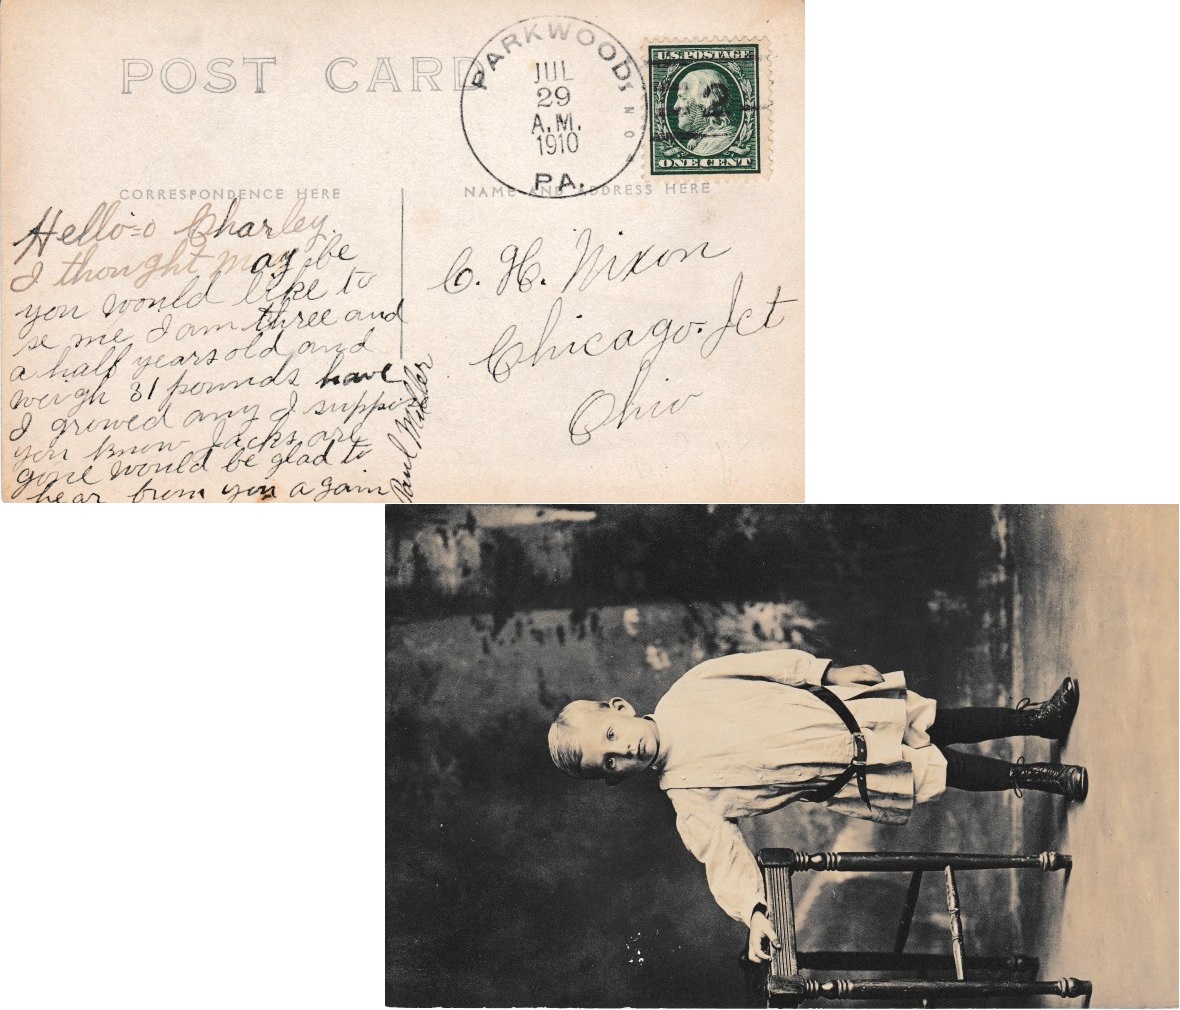 POST CARD
PARKWOOD,
JUL
29
A.M.
1910
PA.
U.S. POSTAGE
ONE CENT
CORRESPONDENCE HERE
NAME AND ADDRESS HERE
Hello=o Charley.
I thought may be
you would like to
se me I am three and
a half years old and
weigh 31 pounds have
I growed any I suppose
you know Jacks are
gone would be glad to
hear from you again
Paul Miller
C. H. Nixon
Chicago. Jct
Ohio